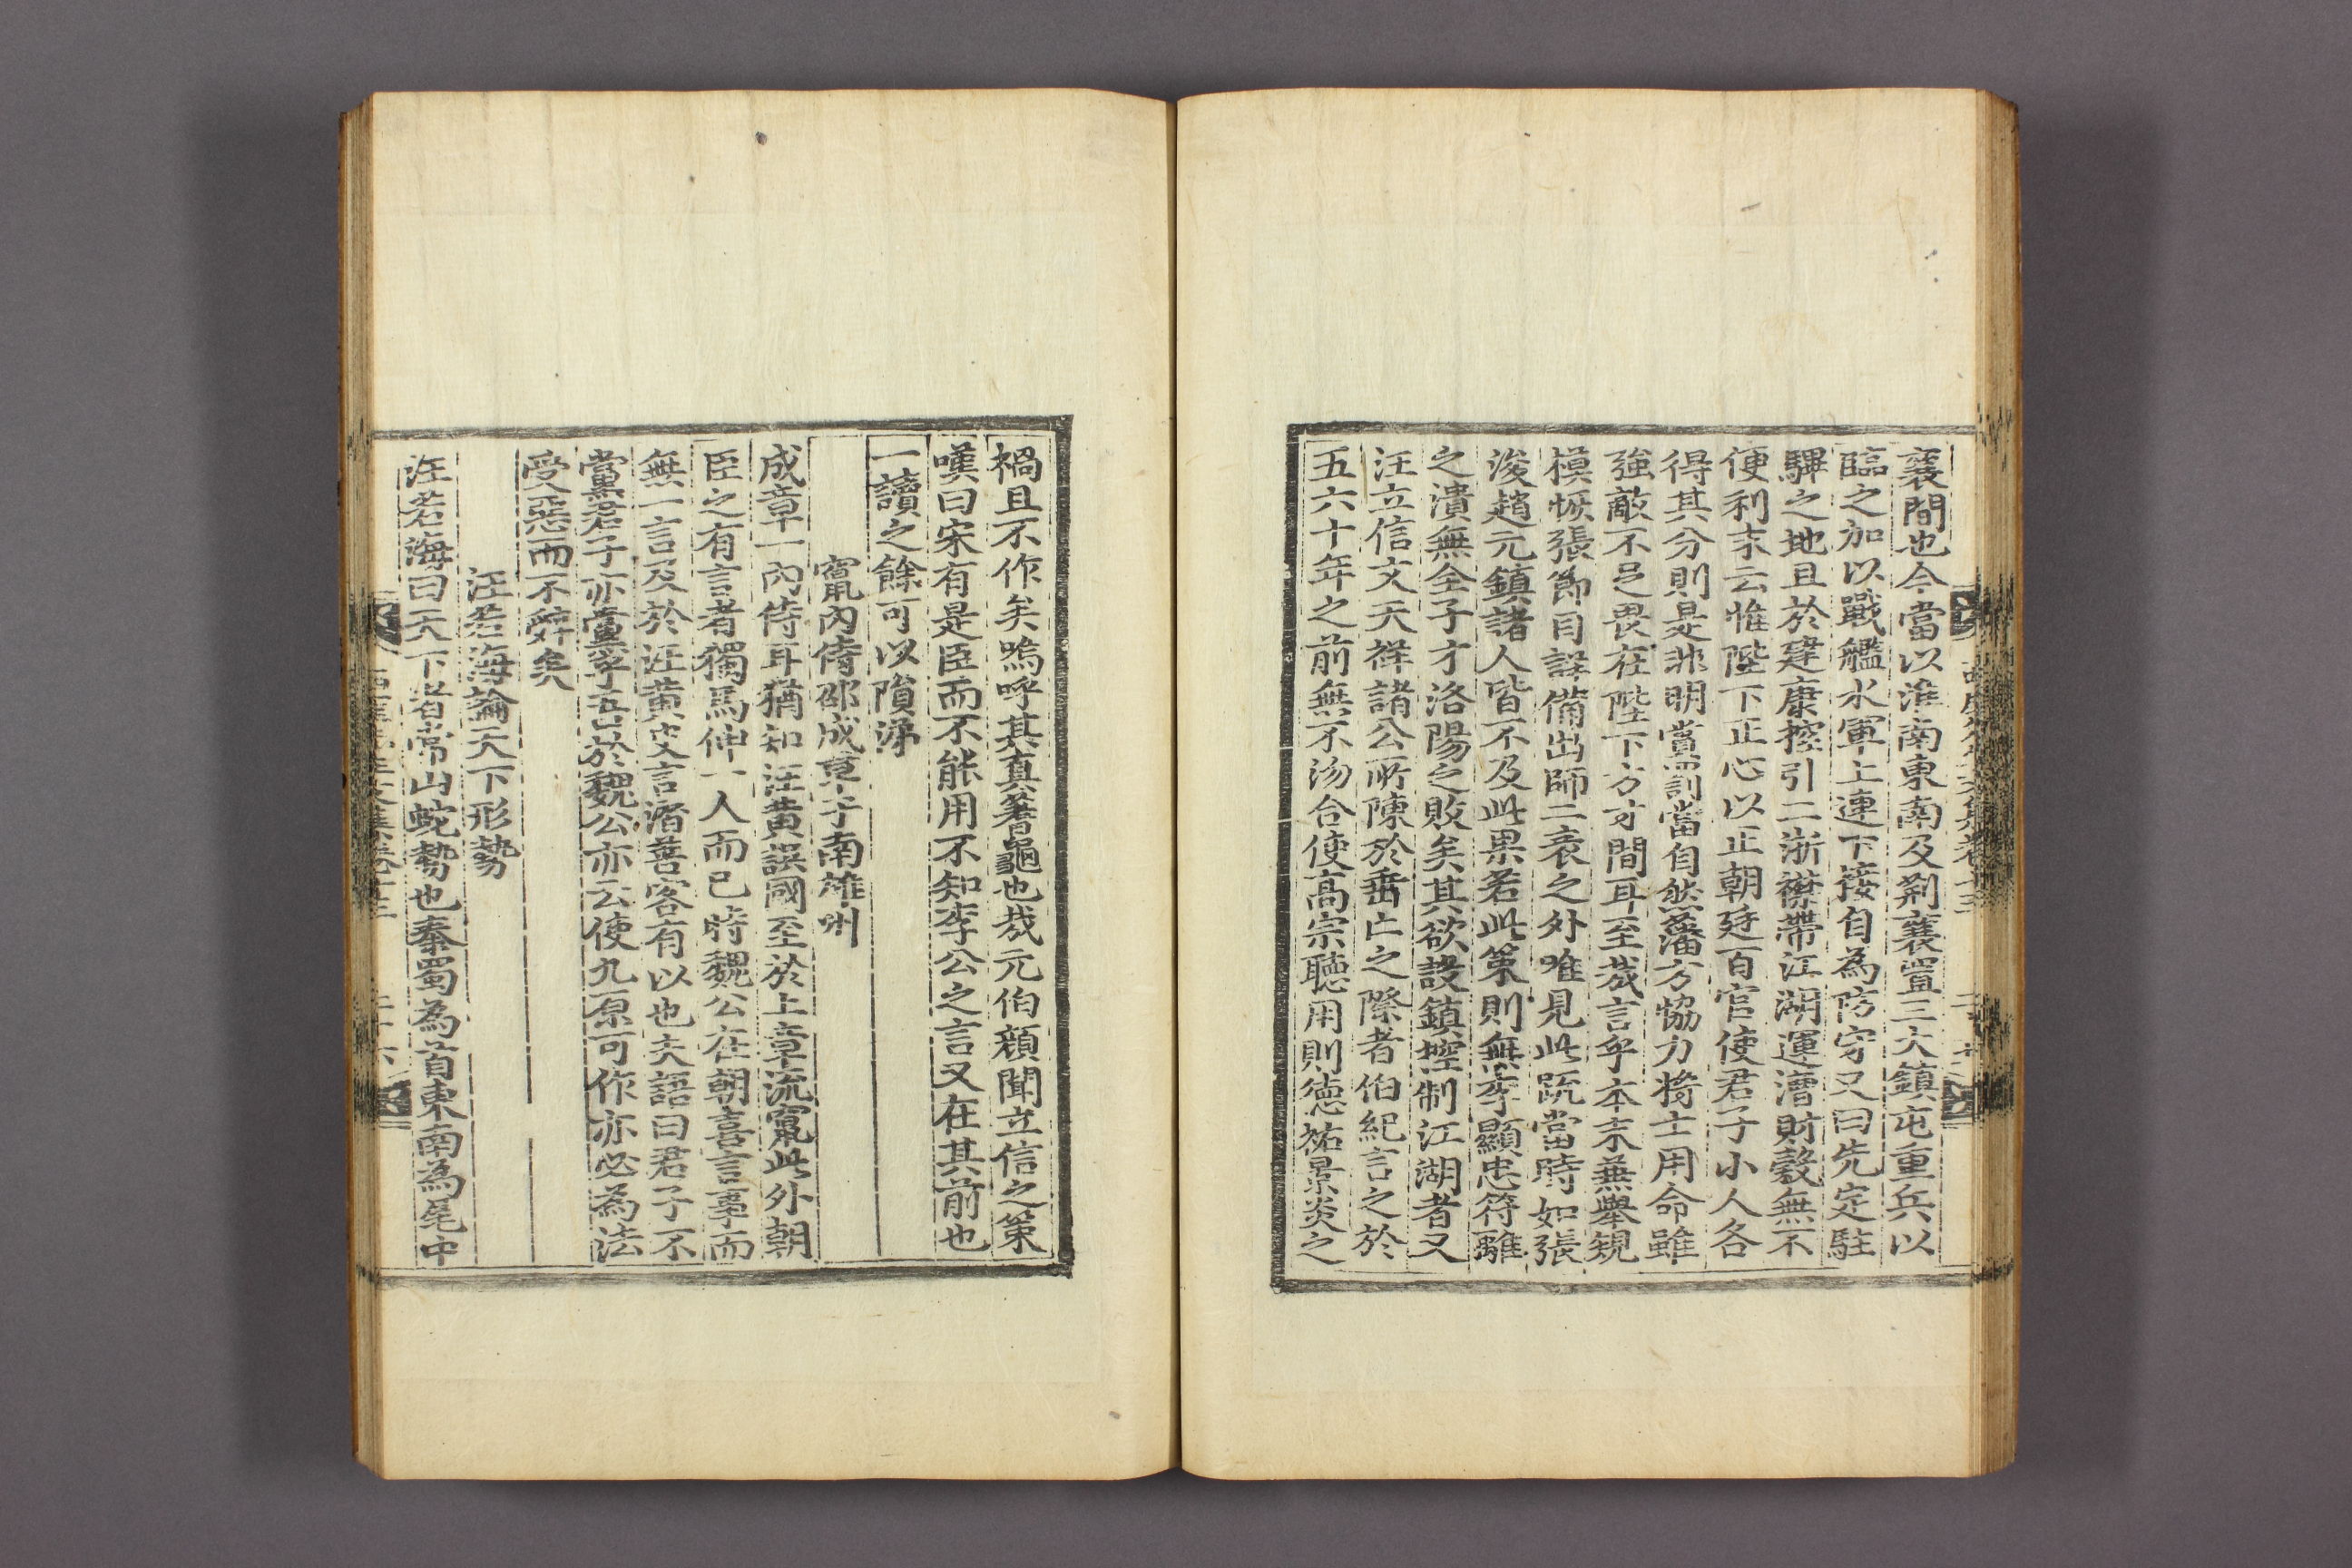 襄間也今當以淮南東南及荆襄置三大鎮屯重兵以
臨之加以戰艦水軍上連下接自為防守又曰先定駐
驆之地且於建康控引二浙襟帶江湖運漕財穀無不
便利末云惟陛下正心以正朝廷百官使君子小人各
得其分則是非明賞罰當自然藩方恊力將士用命雖
強敵不足畏在陛下方寸間耳至㢤言乎本末兼舉規
模恢張節目詳備出師二表之外唯見此䟽當時如張
浚趙元鎮諸人皆不及此果若此策則無李顯忠符離
之潰無全子才洛陽之敗矣其欲設鎮控制江湖者又
汪立信文天祥諸公所陳於垂亡之際者伯紀言之於
五六十年之前無不沕合使高宗聽用則德祐景炎之
禍且不作矣嗚呼其真蓍龜也㢤元伯顔聞立信之策
嘆曰宋有是臣而不能用不知李公之言又在其前也
一讀之餘可以隕涕
竄內侍邵成章于南雄州
成章一內侍耳猶知汪黄誤國至於上章流竄此外朝
臣之有言者獨馬伸一人而已時魏公在朝喜言事而
無一言及於汪黄史言潛善客有以也夫語曰君子不
黨君子亦黨乎吾於魏公亦云使九原可作亦必為法
受惡而不辤矣
汪若海論天下形勢
汪若海曰天下者常山蛇勢也秦蜀為首東南為尾中